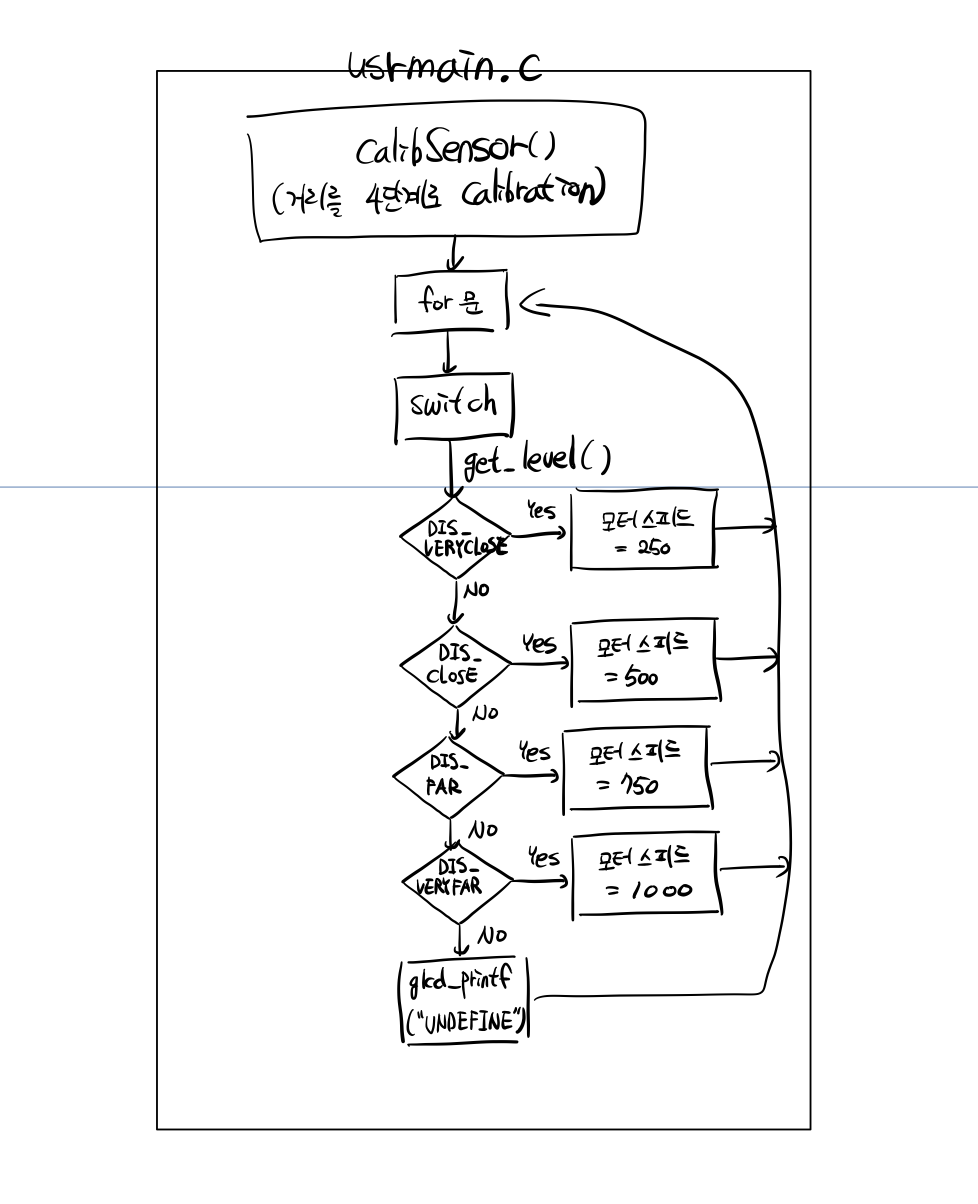 usrmain.c
CalibSensor()
(거리를 4단계로 Calibration)
for 문
switch
get_level()
DIS_
VERYCLOSE
Yes
모터 스피드
= 250
NO
DIS_
CLOSE
Yes
모터 스피드
= 500
NO
DIS_
FAR
Yes
모터 스피드
= 750
NO
DIS_
VERYFAR
Yes
모터 스피드
= 1000
NO
gkd_printf
("UNDEFINE")